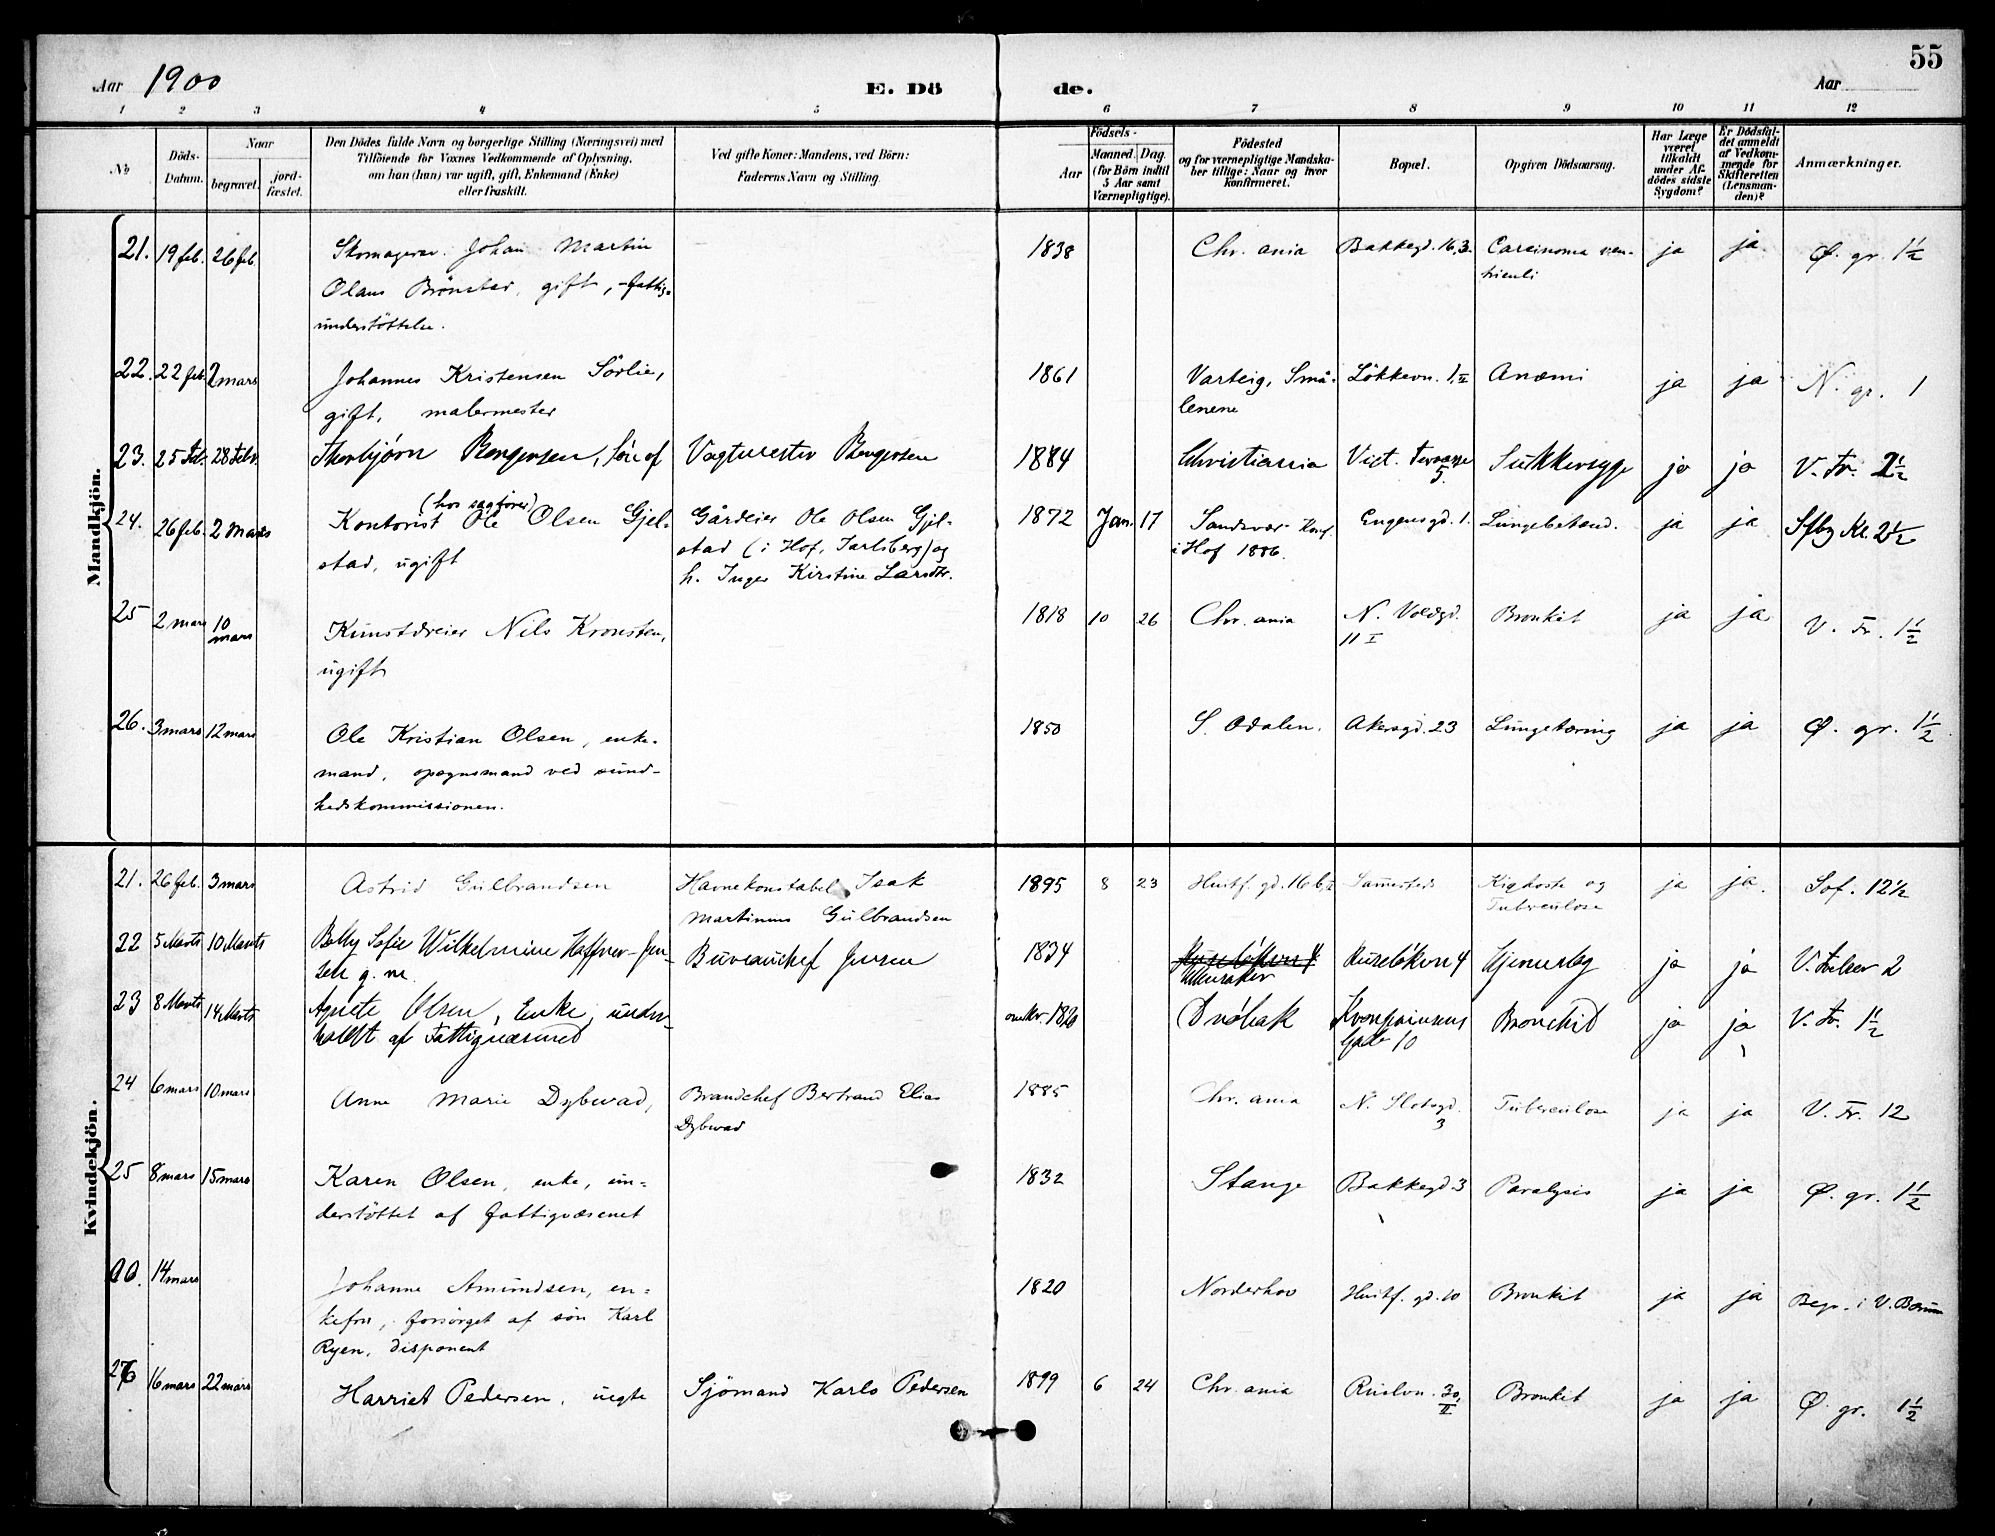 55
Aar 1900 E. Dö de. Aar
1 2 3 4 5 6 7 8 9 10 11 12
No
Döds-Datum.
Naar
begravet.
jord-fæstet.
Den Dödes fulde Navn og borgerlige Stilling (Næringsvei) med
Tilföiende for Voxnes Vedkommende af Oplysning,
om han (hun) var ugift, gift, Enkemand (Enke)
eller fraskilt.
Ved gifte Koner: Mandens, ved Börn:
Faderens Navn og Stilling.
Födsels-
Aar
Maaned. Dag.
(for Börn indtil
5 Aar samt
Værnepligtige).
Födested
og for værnepligtige Mandska-
ber tillige: Naar og hvor
konfirmeret.
Bopæl.
Opgiven Dödsaarsag.
Har Læge
været
tilkaldt
under Af-
dödes sidste
Sygdom?
Er Dödsfal-
det anmeldt
af Vedkom-
mende for
Skifteretten
(Lensman-
den)?
Anmærkninger.
Mandkjön.
21. 19 feb. 26 feb. Skomager. Johan Martin 1838 Chr. ania Bakkegd. 16,3. Carcinoma ven- ja ja Ø. gr. 1½
Olaus Brönstad, gift, fattig- triculi
understöttelse.
22. 22 feb. 2 mars Johannes Kristensen Sörlie, 1861 Varteig, Smaa- Lökkevn. 1, II Anæmi ja ja N. gr. 1
gift, malermester lenene
23. 25 Feb. 28 Febr. Thorbjørn Bengersen, Søn af Vagtmester Bengersen 1884 Christiania Vict. Terrasse 5 Sukkersyge ja ja V. Fr. 2½
(hos sagförer)
24. 26 feb. 2 mars Kontorist Ole Olsen Gjel- Gårdeier Ole Olsen Gjel- 1872 Jan. 17 Sandsvær Konf. Eugensgd. 1. Lungebetænd. ja ja Sfby Kl. 2½
stad, ugift stad (i Hof, Jarlsberg) og i Hof 1886.
h. Inger Kirstine Larsdtr.
25 2 mars 10 mars Kunstdreier Nils Kronsten, 1818 10 26 Chr. ania N. Voldgd. Bronkit ja ja V. Fr. 1½
ugift 11 I
26. 3 mars 12 mars Ole Kristian Olsen, enke- 1850 S. Odalen. Akersgd. 23 Lungetæring ja ja Ø. gr. 1½
mand, opsynsmand ved sund-
hedskommissionen.
Kvindekjön.
21. 26 feb. 3 mars Astrid Gulbrandsen Havnekonstabel Isak 1895 8 23 Huitf. gd. 16 Sammesteds Kighoste og ja ja. Sof. 12½
Martinus Gulbrandsen Tuberculose
22 5 Marts 10 Marts Betty Sofie Wilhelmine Haffner-Jen- Bureauchef Jensen 1834 Ruseløkven 4 Ruseløkven 4 Hjerneslag ja ja V. Frelser 2
sen g. m. Ullensaker
23 8 Marts 14 Marts Agnete Olsen, Enke, under- omkr. 1820 Drøbak Kronprinsens Bronchit ja ja V. Fr. 1½
holdt af Fattigvæsenet Gade 10
24 6 mars 10 mars Anne Marie Dybwad, Brandchef Bertrand Elias 1885 Chr. ania N. Slotsgd. Tuberculose ja ja V. Fr. 12
Dybwad 3
25 8 mars 15 mars Karen Olsen, enke, un- 1832 Stange Bakkegd 3 Paralysis ja ja Ø. gr. 1½
derstöttet af fattigvæsenet
00. 14 mars Johanne Amundsen, en- 1820 Norderhov Huitf. gd. 10 Bronkit ja ja Begr. i V. Bærum
kefru, forsörget af sön Karl
Ryen, disponent
26 16 mars 22 mars Harriet Pedersen, uegte Sjömand Karlo Pedersen 1899 6 24 Chr. ania Ruselvn. 30, II Bronkit ja ja Ø. gr. 1½